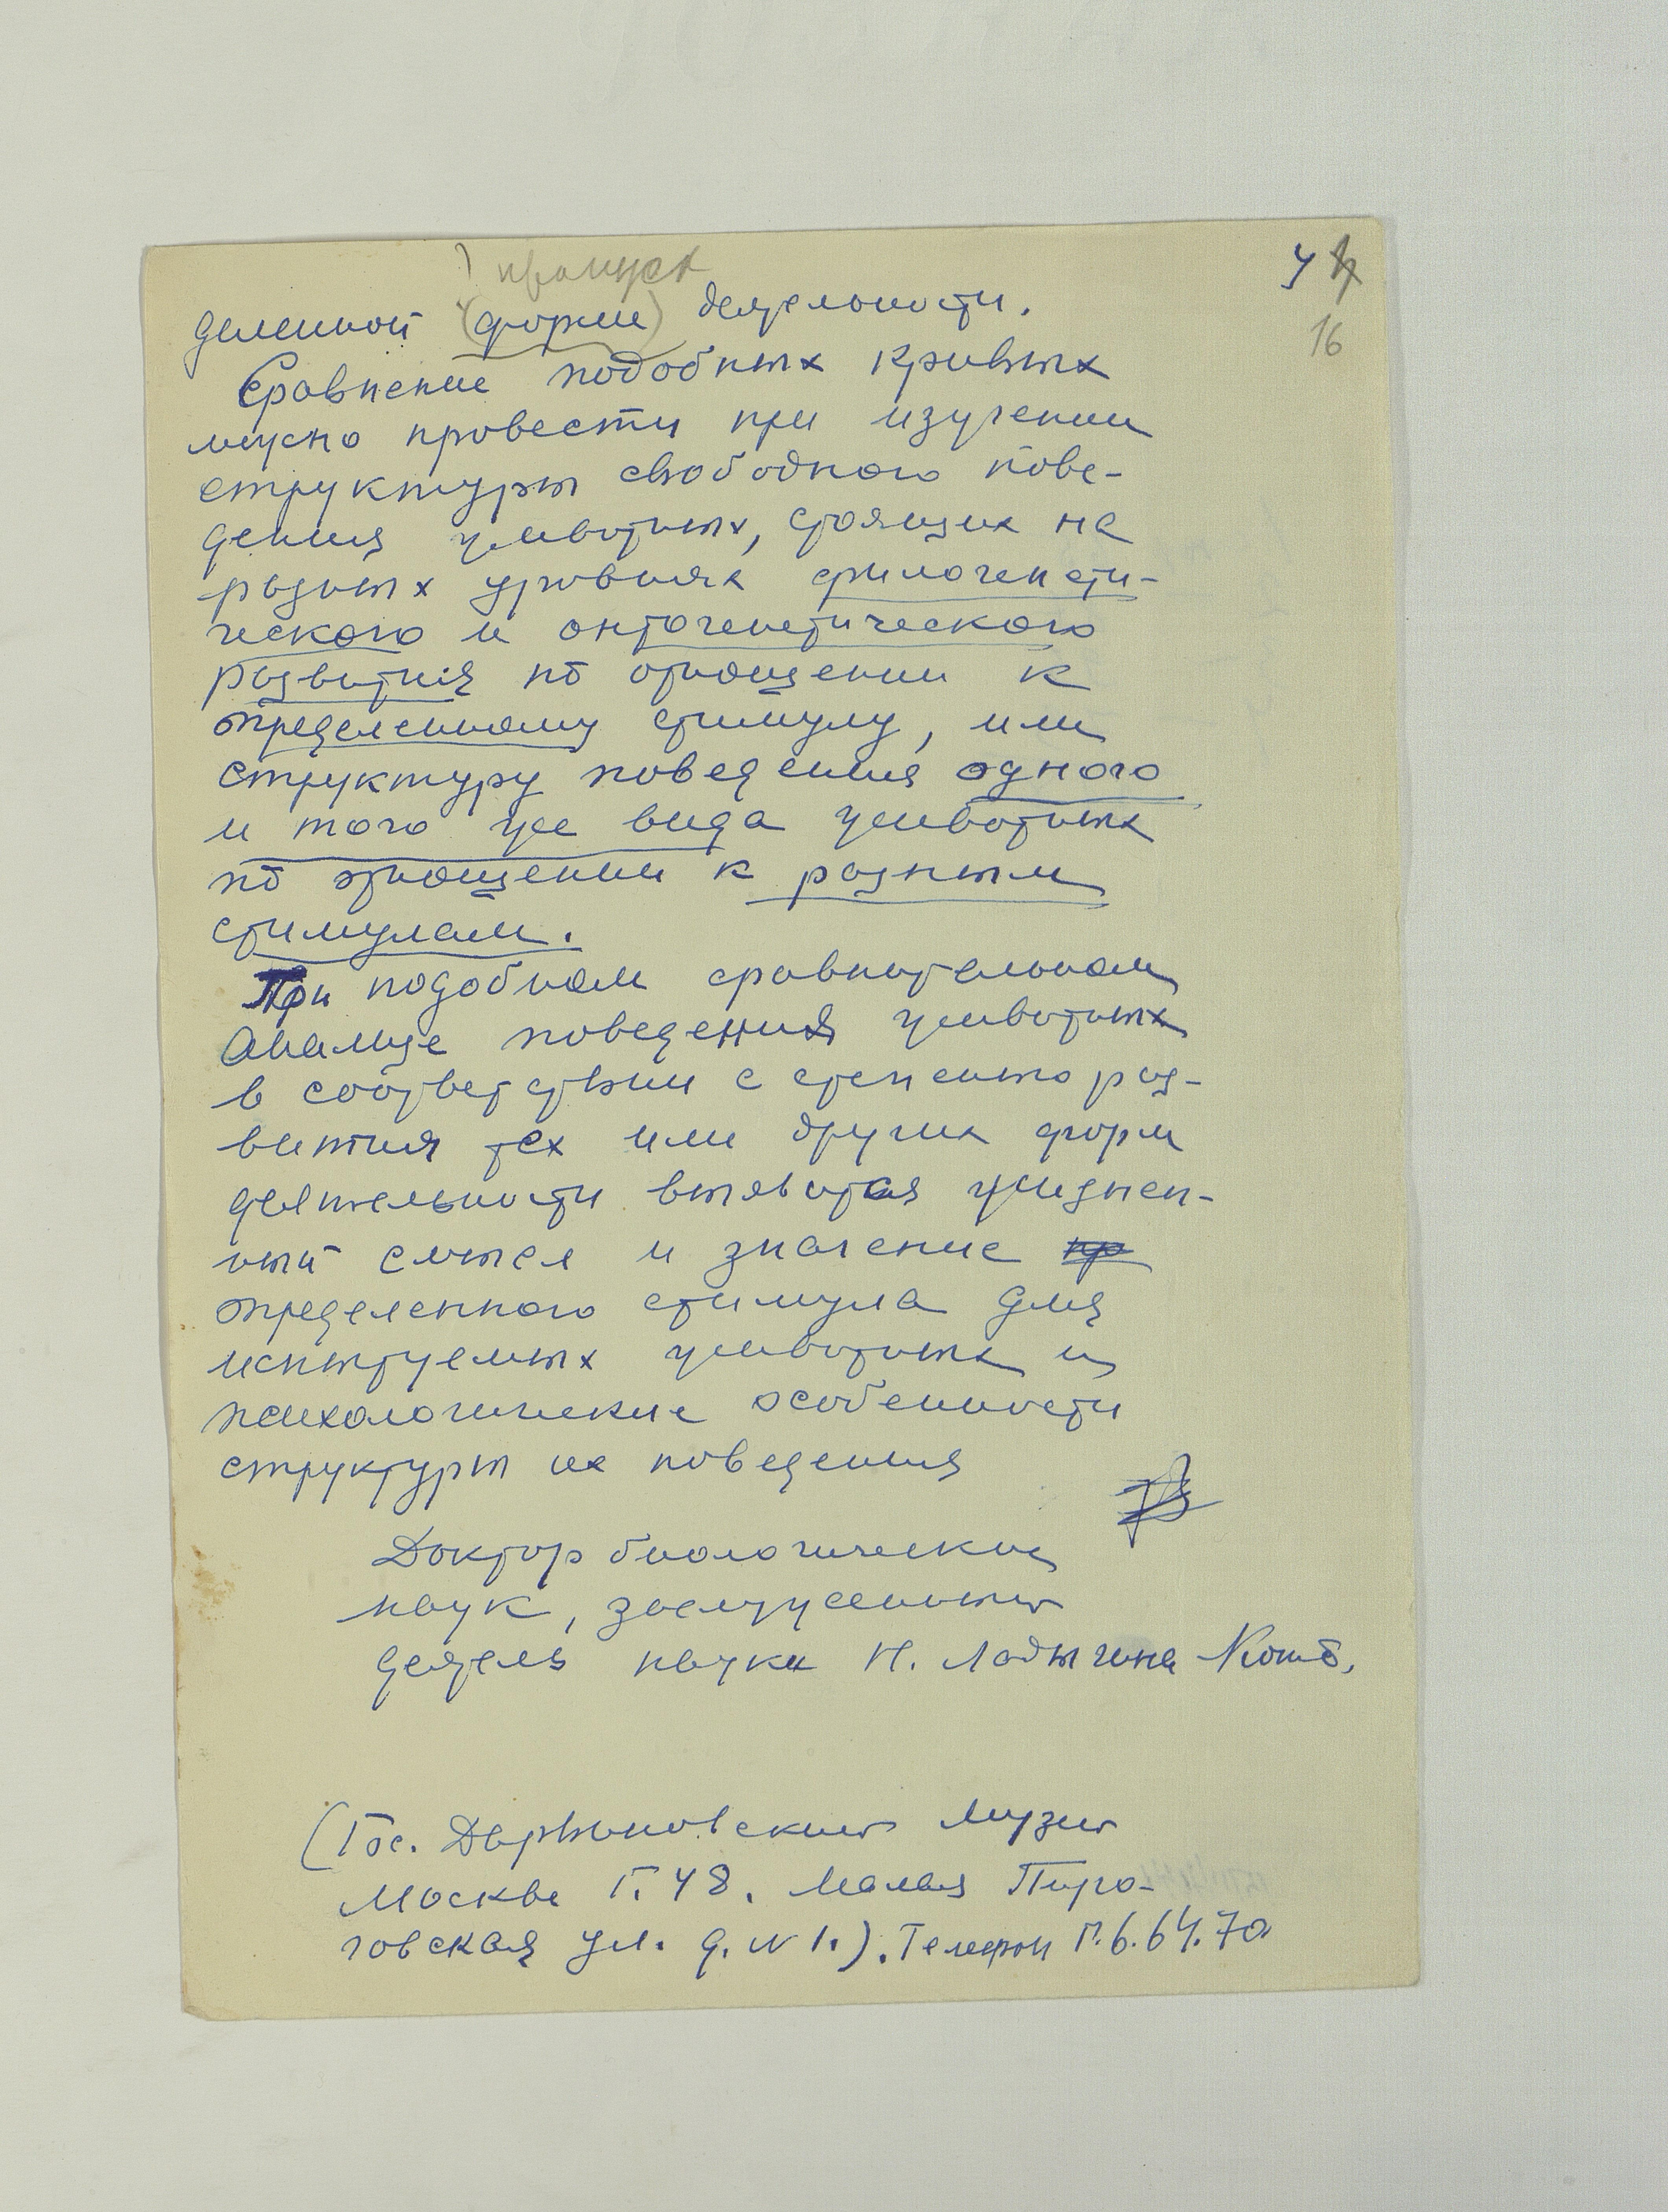 пропуск
4
16
деленной (форме) деятельности.
Сравнение подобных кривых
можно провести при изучении
структуры свободного пове-
дения животных, стоящих на
разных уровнях филогенети-
ческого и онтогенетического
развития по отношении к
определенному стимулу, или
структуру поведения одного
и того же вида животных
по отношении к разным
стимулам.
При подобном сравнительном
анализе поведения животных
в соответствии с степенью раз-
вития тех или других форм
деятельности выявится жизнен-
ный смысл и значение
определенного стимула для
испытуемых животных и
психологические особенности
структуры их поведения
Доктор биологических
наук, заслуженный
деятель науки Н. Ладыгина Котс.
(Гос. Дарвиновский Музей
Москва Г. 48. Малая Пиро-
говская ул. д. N 1.). Телефон Г. 6. 64. 70